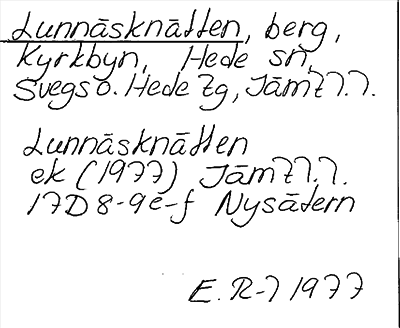 Lunnäsknätten, berg,
Kyrkbyn, Hede sn,
Svegs o. Hede tg, Jämtl.l.
Lunnäsknätten
ek (1977) Jämtl.l.
17D 8-9e-f Nysätern
E. R-l 1977